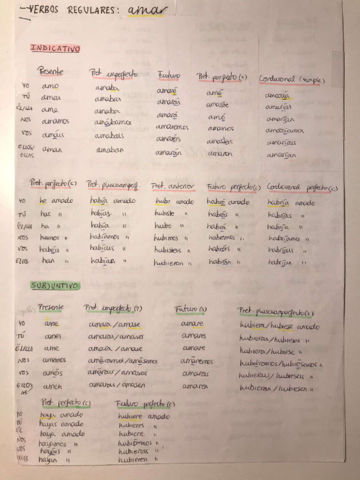 VERBOS REGULARES: amar
INDICATIVO
Presente Pret. imperfecto Futuro Pret. perfecto(s) Condicional (simple)
YO amo amaba amaré amé amaría
TÚ amas amabas amarás amaste amarías
ÉL/ELLA ama amaba amará amó amaría
NOS amamos amábamos amaremos amamos amaríamos
VOS amáis amabais amaréis amasteis amaríais
ELLOS/ELLAS aman amaban amarán amaron amarían
Pret. perfecto(c) Pret. pluscuamperf. Pret. anterior Futuro perfecto(c) Condicional perfecto(c)
YO he amado había amado hube amado habré amado habría amado
TÚ has " habías " hubiste " habrás " habrías "
ÉL/ELLA ha " había " hubo " habrá " habría "
NOS hemos " habíamos " hubimos " habremos " habríamos "
VOS habéis " habíais " hubisteis " habréis " habríais "
ELLOS han " habían " hubieron " habrán " habrían "
SUBJUNTIVO
Presente Pret. imperfecto(s) Futuro(s) Pret. pluscuamperfecto(c)
YO ame amara/amase amare hubiera/hubiese amado
TÚ ames amaras/amases amares hubieras/hubieses "
ÉL/ELLA ame amara/amase amare hubiera/hubiese "
NOS amemos amáramos/amásemos amáremos hubiéramos/hubiésemos "
VOS améis amarais/amaseis amareis hubierais/hubieseis "
ELLOS/AS amen amaran/amasen amaren hubieran/hubiesen "
Pret. perfecto(c) Futuro perfecto(c)
YO haya amado hubiere amado
TÚ hayas amado hubieres "
ÉL haya amado hubiere "
NOS hayamos " hubiéremos "
VOS hayáis " hubiereis "
ELLOS hayan " hubieren "